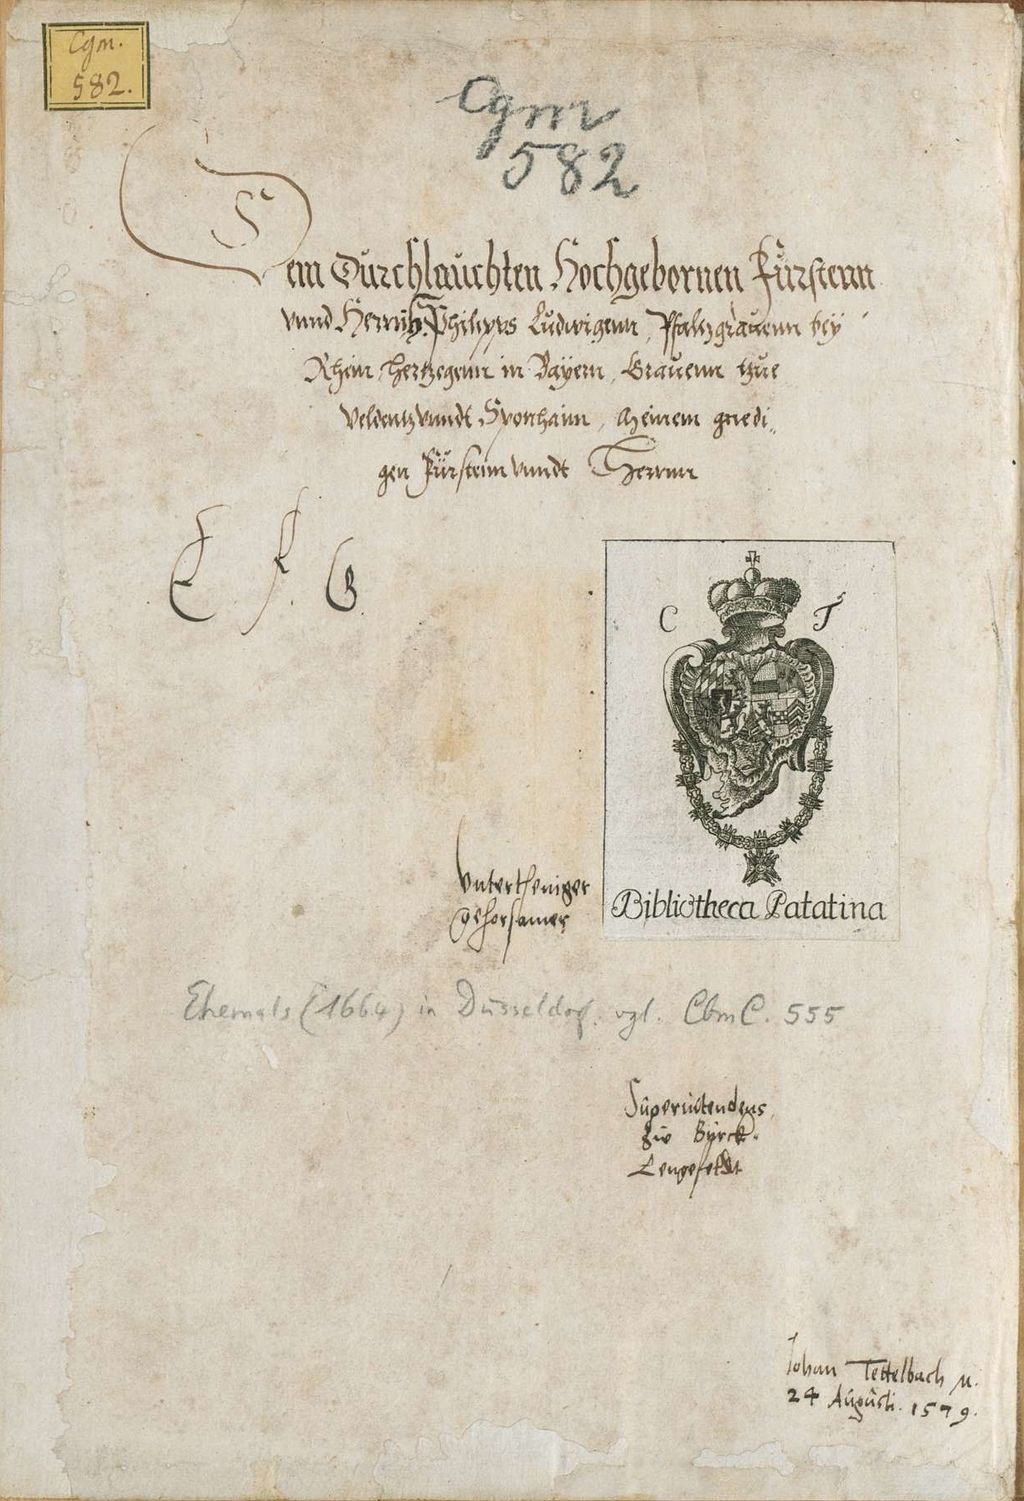 Cgm.
582.
Cgm
582
Dem Durchlauchten Hochgebornen Fürstenn
vnnd Herrnn H. Philipps Ludwigenn, Pfaltzgrauenn bey
Rhein Hertzegenn in Bayern, Grauenn tzue
Veldentz vnndt Sponhaim, Meinem gnedi„
gen Fürstenn vnndt Herrnn
E. F. G.
C T
Vntertheniger
gehorsamer
Bibliotheca Palatina
Ehemals (1664) in Düsseldorf. vgl. CbmC. 555
Superintendens
zw Byrck.
Lengefeldt
Johan Tettelbach M.
24 Augusti. 1579.